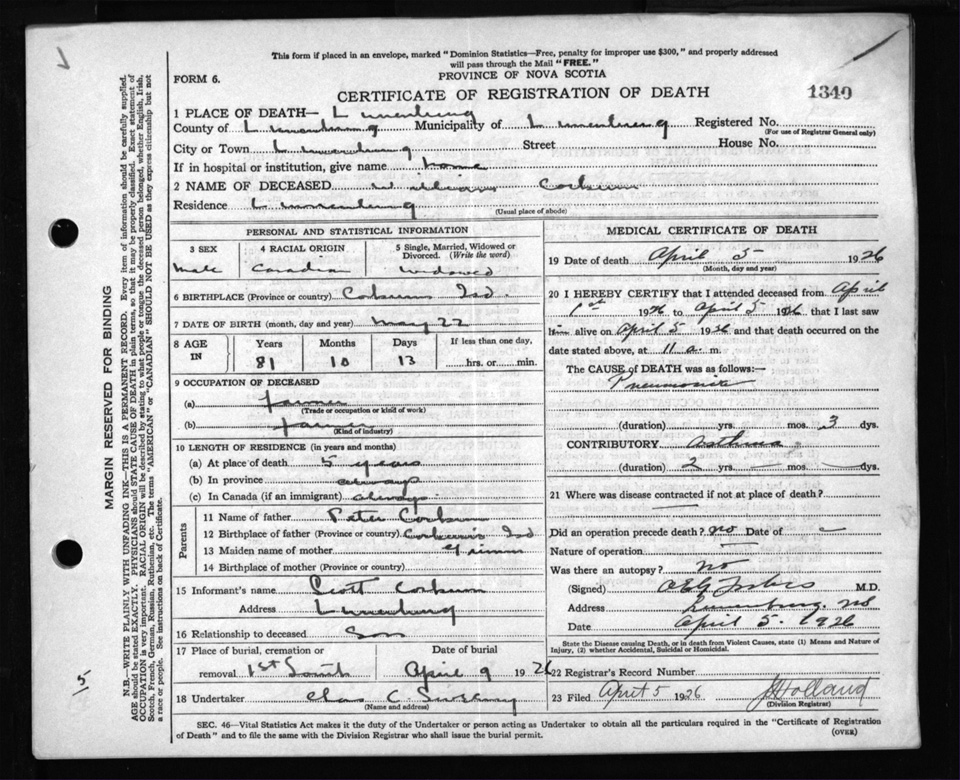 This form if placed in an envelope, marked "Dominion Statistics—Free, penalty for improper use $300," and properly addressed
will pass through the Mail "FREE."
FORM 6.
PROVINCE OF NOVA SCOTIA
CERTIFICATE OF REGISTRATION OF DEATH
1349
1 PLACE OF DEATH— Lunenburg
County of Lunenburg Municipality of Lunenburg Registered No.
(For use of Registrar General only)
City or Town Lunenburg Street House No.
If in hospital or institution, give name home
2 NAME OF DECEASED William Corkum
Residence Lunenburg
(Usual place of abode)
PERSONAL AND STATISTICAL INFORMATION
3 SEX 4 RACIAL ORIGIN 5 Single, Married, Widowed or
Divorced. (Write the word)
male Canadian widowed
6 BIRTHPLACE (Province or country) Corkums Isd.
7 DATE OF BIRTH (month, day and year) may 22
8 AGE IN Years Months Days If less than one day,
81 10 13 hrs. or min.
9 OCCUPATION OF DECEASED
(a) farmer
(Trade or occupation or kind of work)
(b) farmer
(Kind of industry)
10 LENGTH OF RESIDENCE (in years and months)
(a) At place of death 5 years
(b) In province always
(c) In Canada (if an immigrant) always
Parents
11 Name of father Peter Corkum
12 Birthplace of father (Province or country) Corkums Isd
13 Maiden name of mother Grimm
14 Birthplace of mother (Province or country)
15 Informant's name Scott Corkum
Address Lunenburg
16 Relationship to deceased Son
17 Place of burial, cremation or Date of burial
removal 1st South April 9 1926
18 Undertaker Chas C
(Name and address)
MEDICAL CERTIFICATE OF DEATH
19 Date of death April 5 1926
(Month, day and year)
20 I HEREBY CERTIFY that I attended deceased from April
1st 1926 to April 5 1926 that I last saw
him alive on April 5 1926 and that death occurred on the
date stated above, at 11 a m.
The CAUSE of DEATH was as follows:—
Pneumonia
(duration) yrs. mos. 3 dys.
CONTRIBUTORY asthma
(duration) 2 yrs. — mos. — dys.
21 Where was disease contracted if not at place of death?
—
Did an operation precede death? no Date of —
Nature of operation —
Was there an autopsy? no
(Signed) M.D.
Address Lunenburg. NS
Date April 5. 1926
State the Disease causing Death, or in death from Violent Causes, state (1) Means and Nature of
Injury, (2) whether Accidental, Suicidal or Homicidal.
22 Registrar's Record Number
23 Filed April 5 1926 Holland
(Division Registrar)
SEC. 46—Vital Statistics Act makes it the duty of the Undertaker or person acting as Undertaker to obtain all the particulars required in the "Certificate of Registration
of Death" and to file the same with the Division Registrar who shall issue the burial permit. (OVER)
MARGIN RESERVED FOR BINDING
N.B.—WRITE PLAINLY WITH UNFADING INK—THIS IS A PERMANENT RECORD. Every item of information should be carefully supplied.
AGE should be stated EXACTLY. PHYSICIANS should STATE CAUSE OF DEATH in plain terms, so that it may be properly classified. Exact statement of
OCCUPATION is very important. RACIAL ORIGIN will be described by stating to what people or tongue the deceased person belonged, whether English, Irish,
Scotch, French, German, Russian, Ruthenian, etc. The terms "AMERICAN" or "CANADIAN" SHOULD NOT BE USED as they express citizenship but not
a race or people. See instructions on back of Certificate.
5